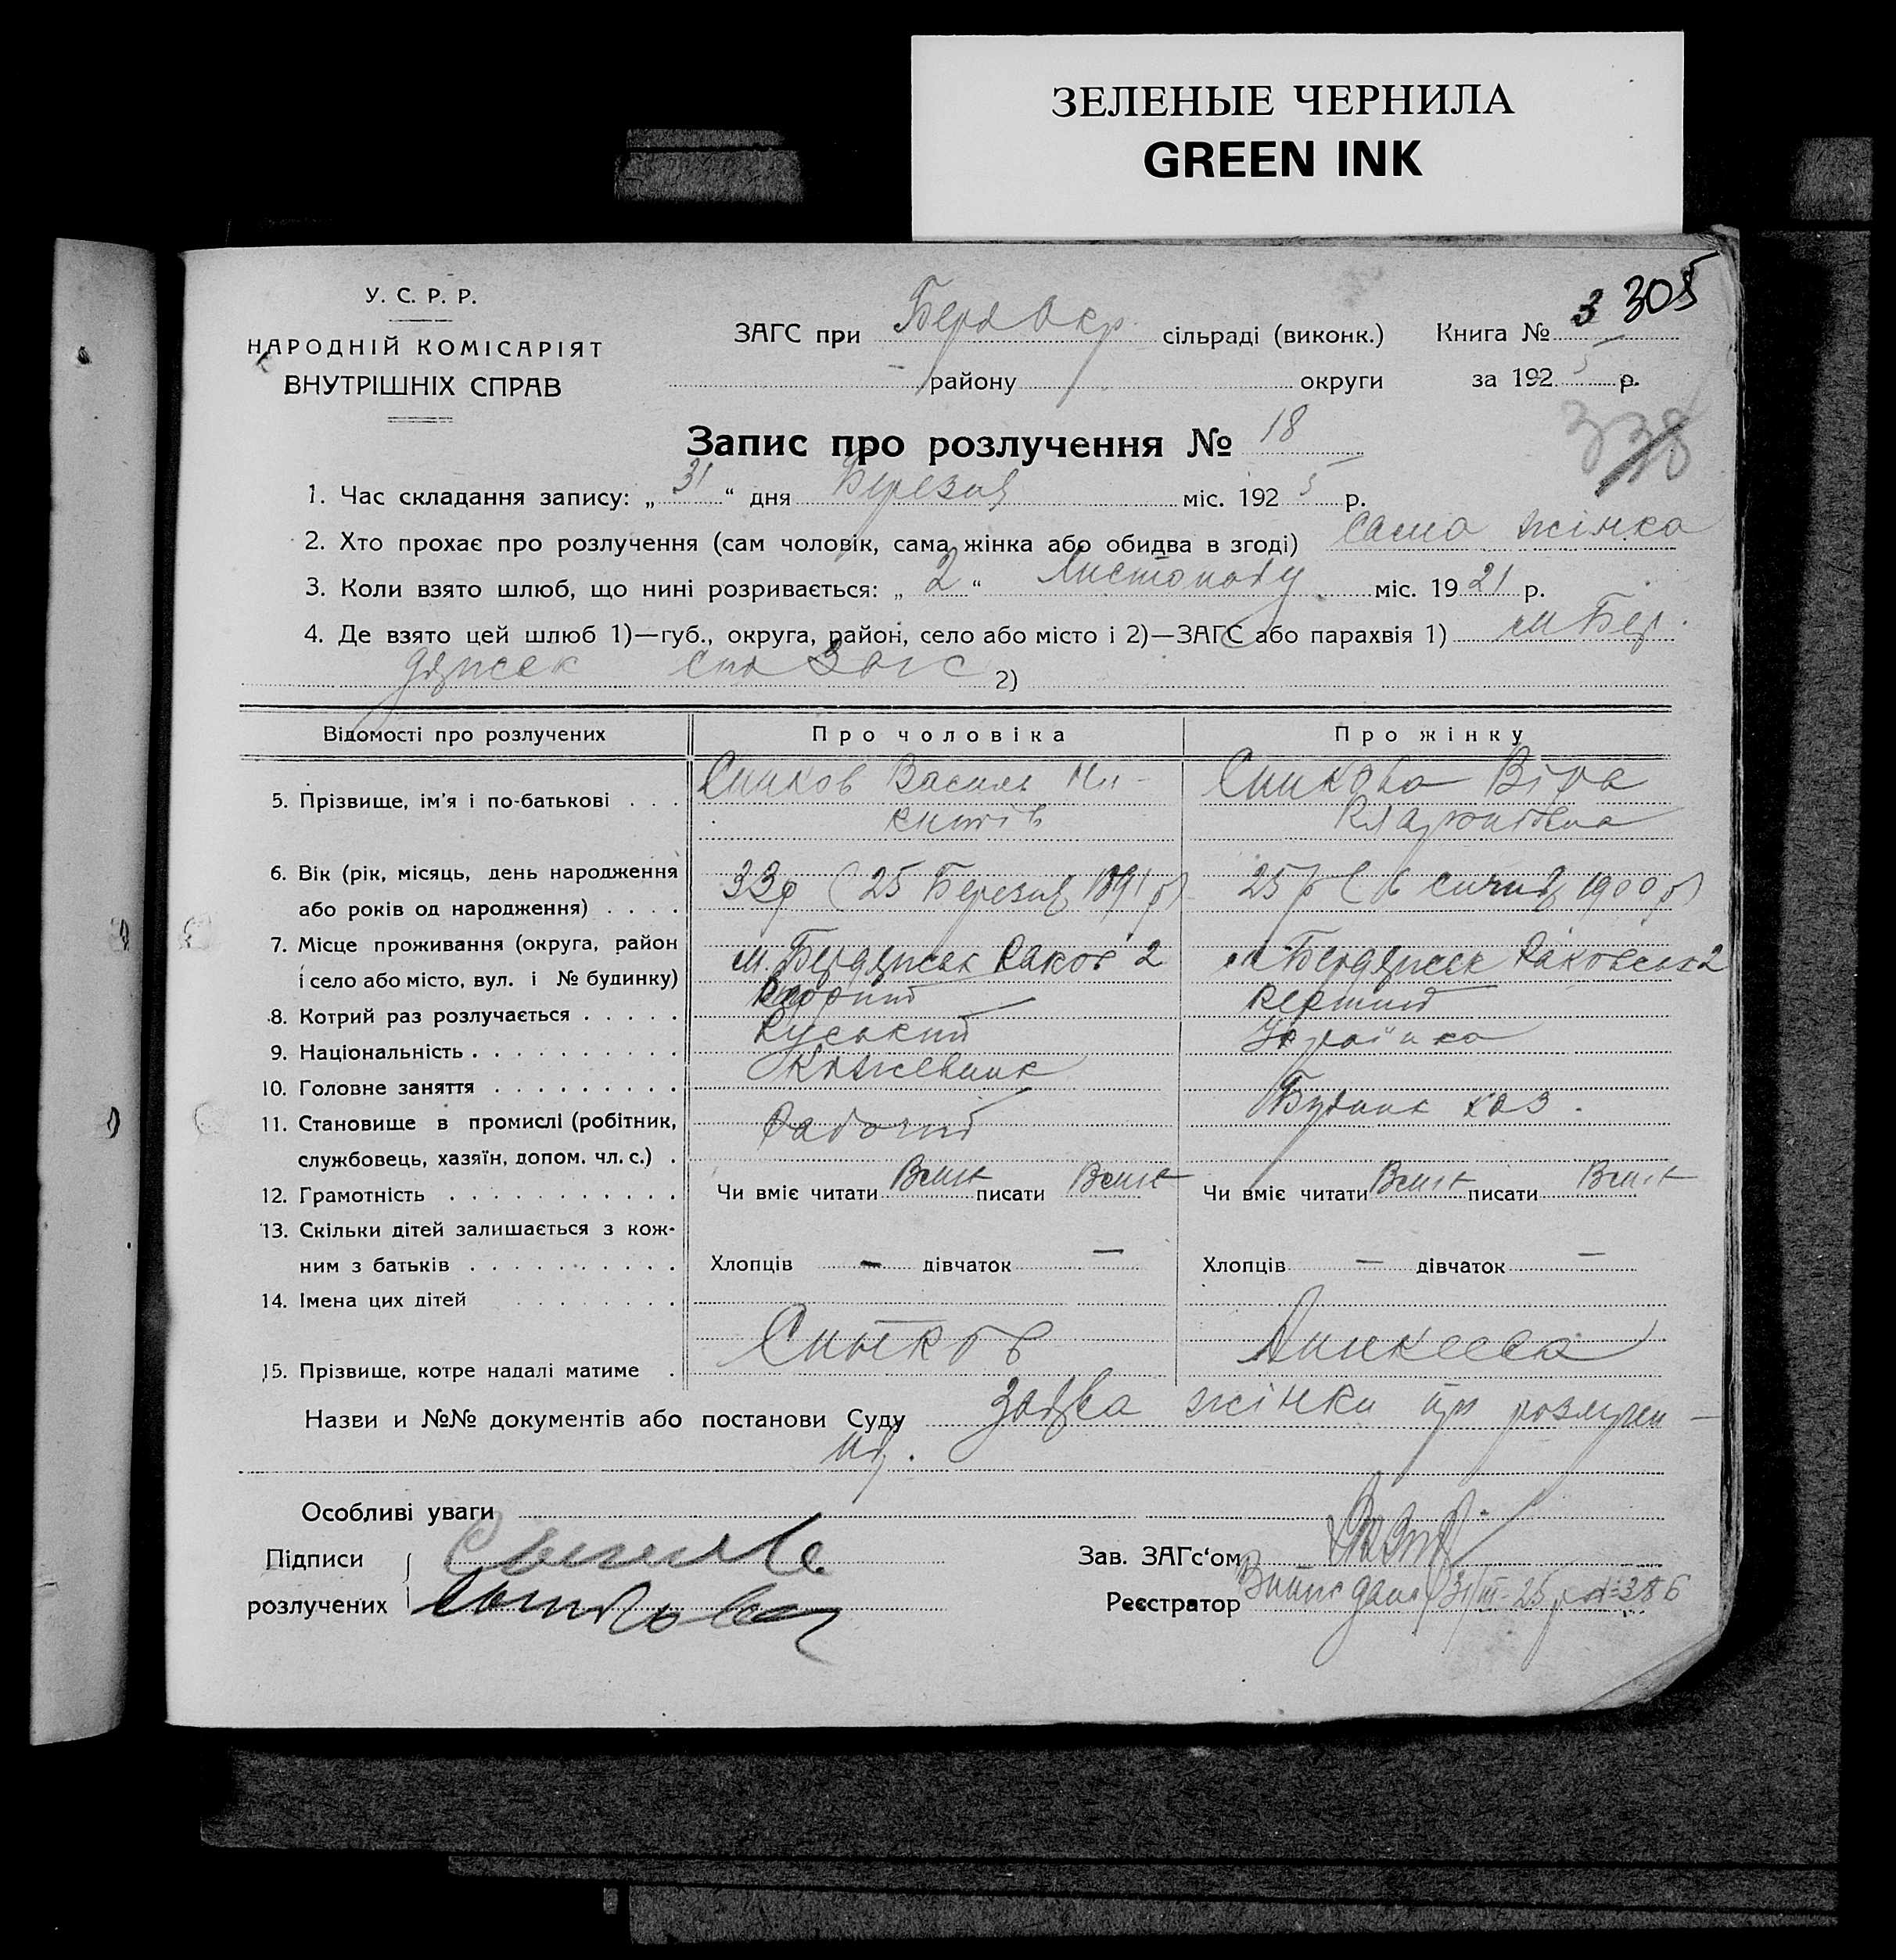 ЗЕЛЕНЫЕ ЧЕРНИЛА
GREEN INK
У. С. Р. Р.
НАРОДНІЙ КОМІСАРІЯТ
ВНУТРІШНІХ СПРАВ
3 305
ЗАГС при Берд Окр. сільраді (виконк.) Книга №
району округи за 192 5 р.
338
Запис про розлучення № 18
1. Час складання запису: „ 31 “ дня Березня міс. 192 5 р.
2. Хто прохає про розлучення (сам чоловік, сама жінка або обидва в згоді) сама жінка
3. Коли взято шлюб, що нині розривається: „ 2 “ Листопаду міс. 19 21 р.
4. Де взято цей шлюб 1)—губ., округа, район, село або місто і 2)—ЗАГС або парахвія 1) м Бер
дянськ ЗАГС 2)
Відомості про розлучених Про чоловіка Про жінку
5. Прізвище, ім'я і по-батькові . . . Василь Ми- Віра
китів
6. Вік (рік, місяць, день народження 33р (25 Березня 1891 р) 25 р (6 січня 1900 р)
або років од народження) . . . .
7. Місце проживання (округа, район м. Бердянськ Раков 2 м Бердянськ Раковська 2
і село або місто, вул. і № будинку)
8. Котрий раз розлучається . . . . . Вторий Перший
9. Національність . . . . . . . . . . Руський Українка
10. Головне заняття . . . . . . . . . Кожевник
11. Становище в промислі (робітник, Рабочий
службовець, хазяїн, допом. чл. с.) .
12. Грамотність . . . . . . . . . . . Чи вміє читати Вміє писати Вміє Чи вміє читати Вміє писати Вміє
13. Скільки дітей залишається з кож-
ним з батьків . . . . . . . . . . Хлопців — дівчаток — Хлопців — дівчаток —
14. Імена цих дітей . . . . . . . .
15. Прізвище, котре надалі матиме . Сиыков
Назви и №№ документів або постанови Суду Заява жінки про розлучен-
ня.
Особливі уваги
Підписи Зав. ЗАГс'ом
розлучених Реєстратор Випис дана 31/III-25 р № 386